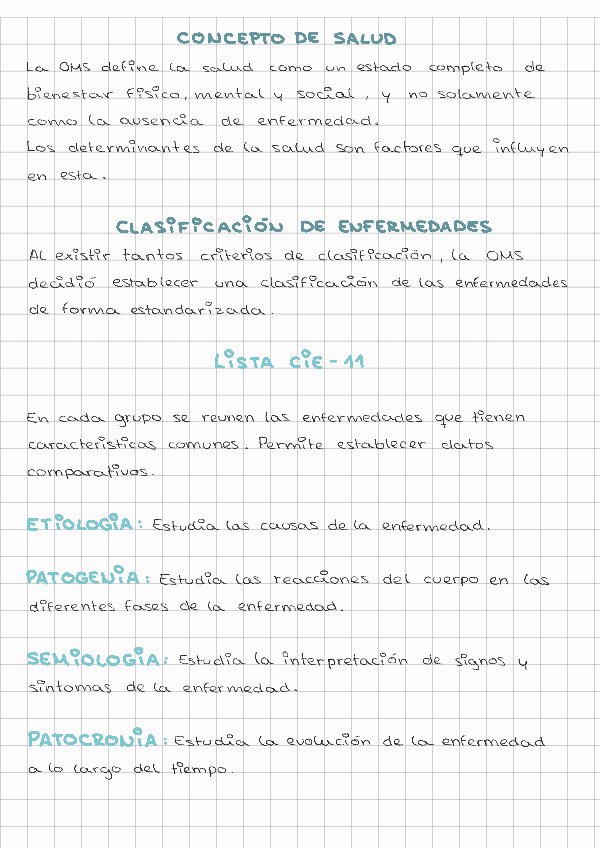 CONCEPTO DE SALUD
La OMS define la salud como un estado completo de
bienestar físico, mental y social, y no solamente
como la ausencia de enfermedad.
Los determinantes de la salud son factores que influyen
en esta.
CLASIFICACIÓN DE ENFERMEDADES
Al existir tantos criterios de clasificación, la OMS
decidió establecer una clasificación de las enfermedades
de forma estandarizada.
LISTA CIE-11
En cada grupo se reunen las enfermedades que tienen
características comunes. Permite establecer datos
comparativos.
ETIOLOGIA: Estudia las causas de la enfermedad.
PATOGENIA: Estudia las reacciones del cuerpo en las
diferentes fases de la enfermedad.
SEMIOLOGIA: Estudia la interpretación de signos y
síntomas de la enfermedad.
PATOCRONIA: Estudia la evolución de la enfermedad
a lo largo del tiempo.